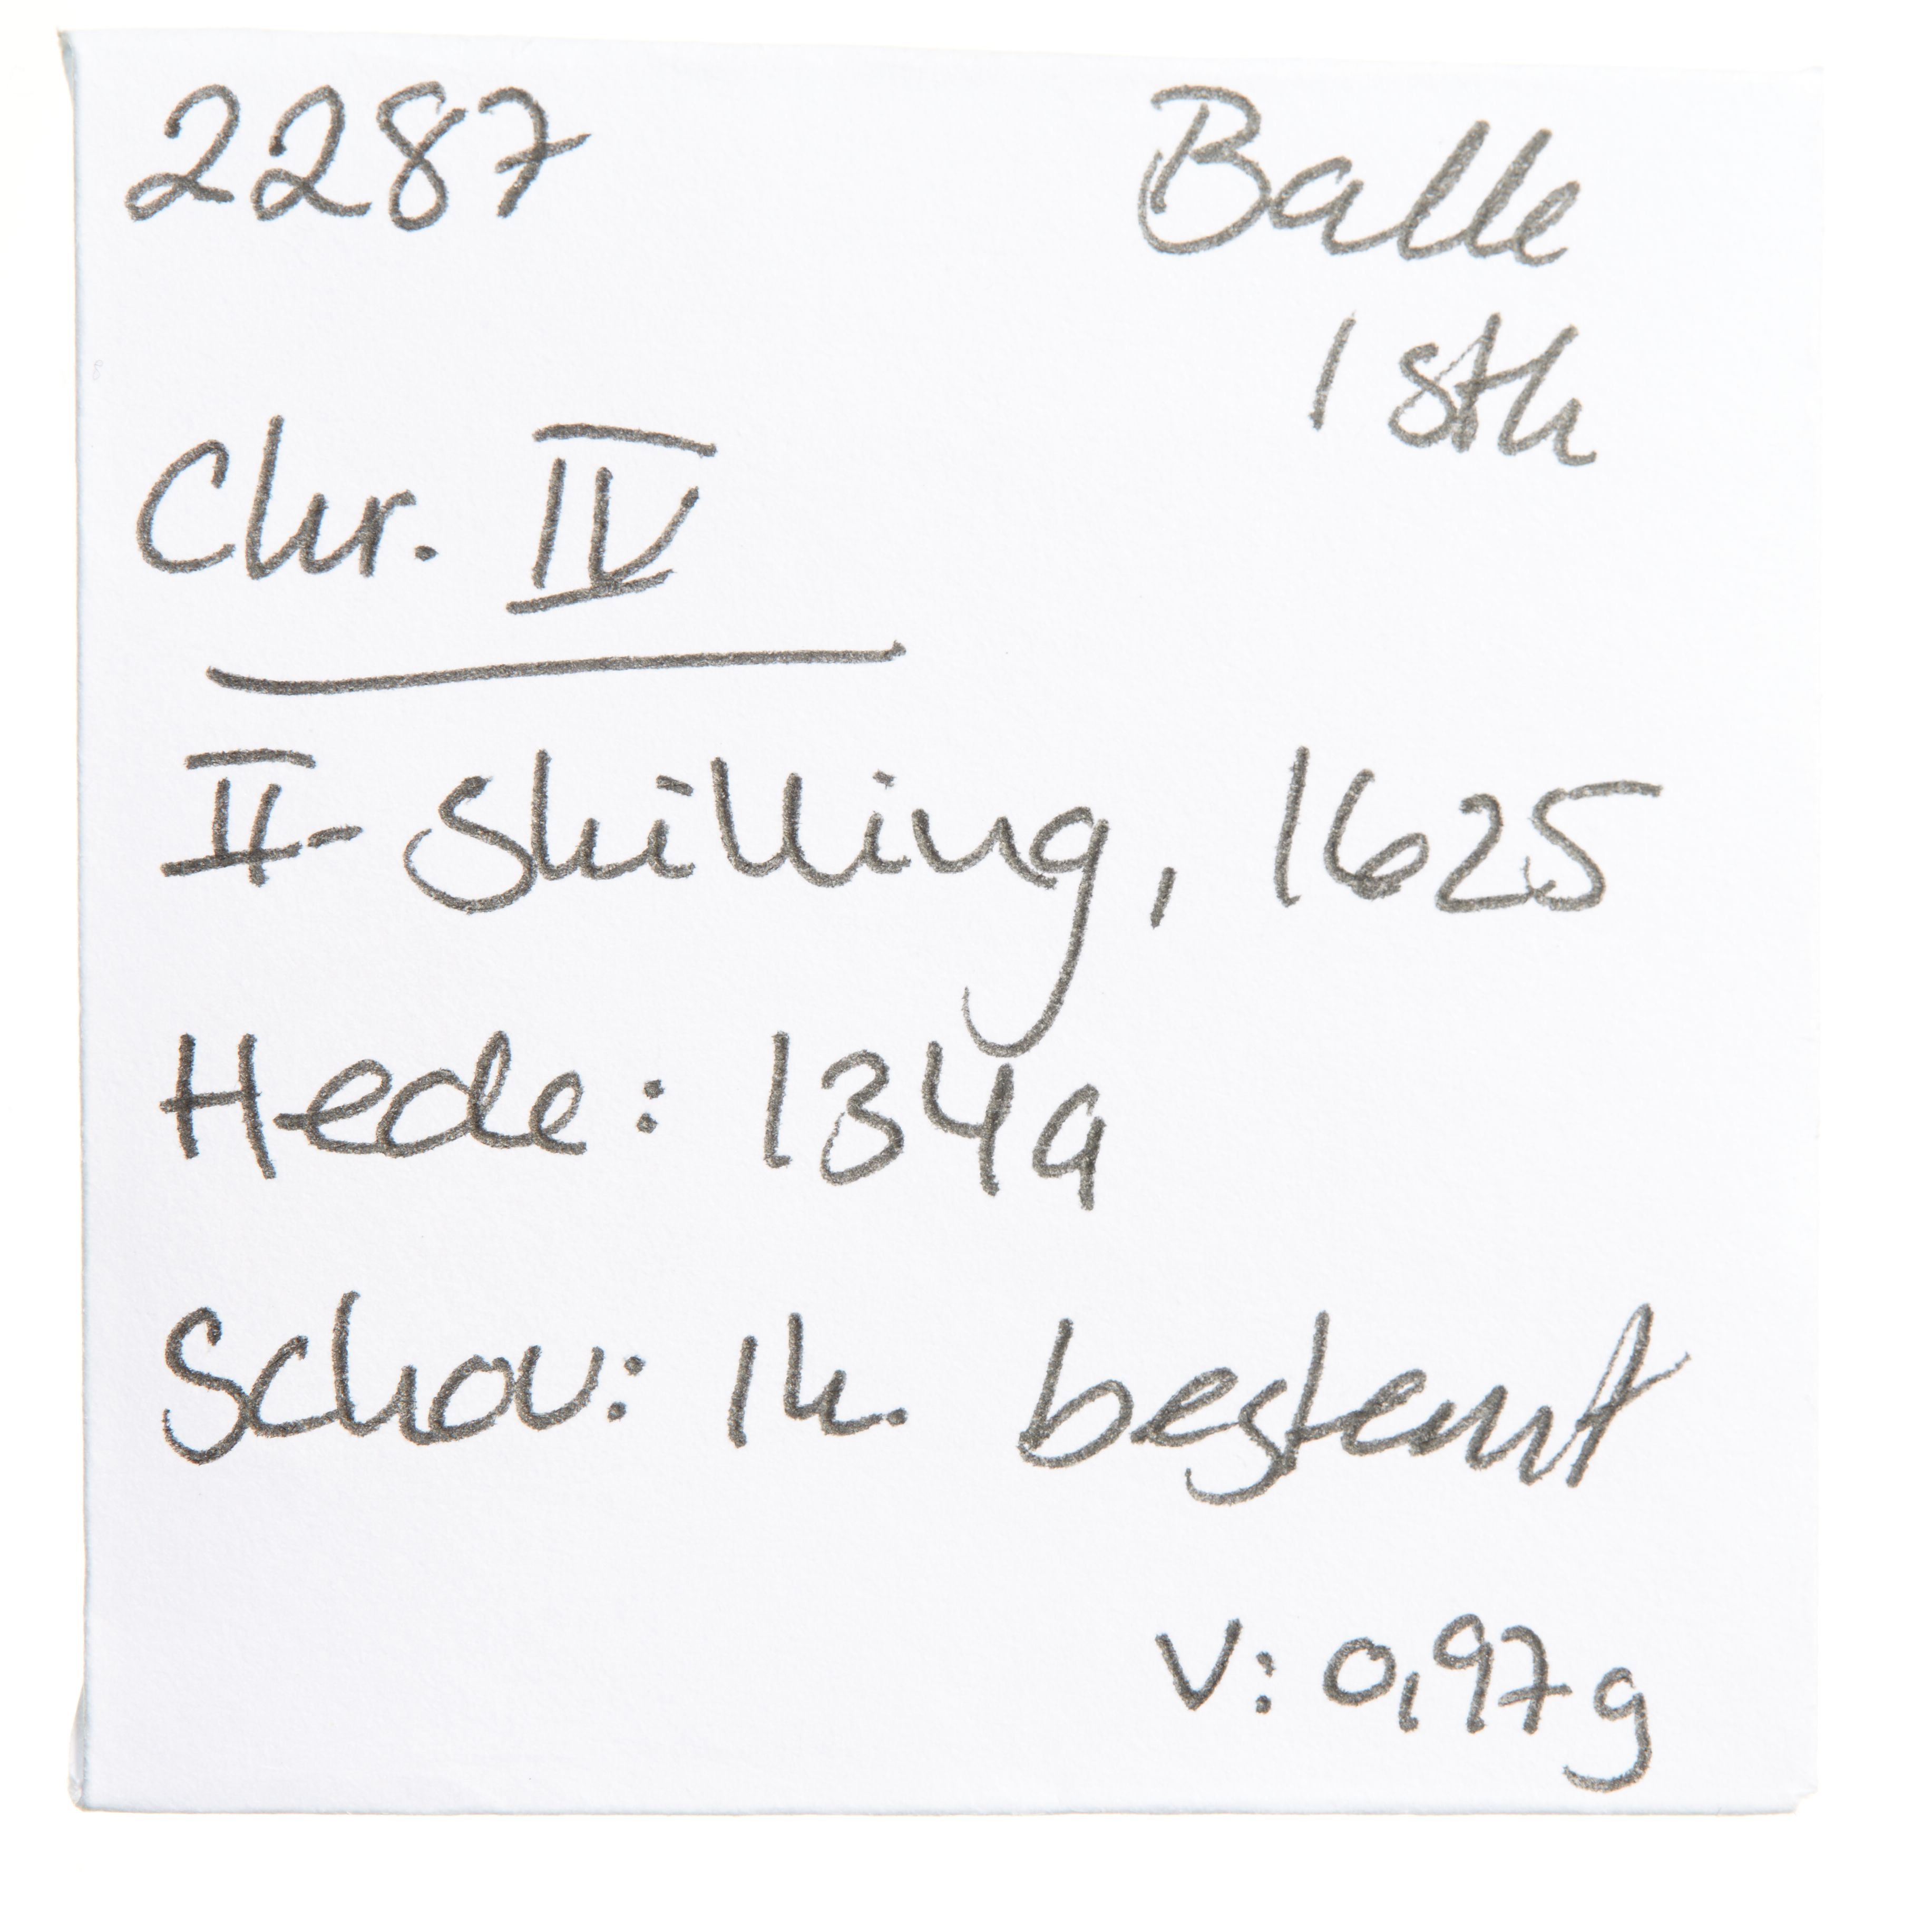 2287
Balle
1 stk
Chr. IV
II-Skilling, 1625
Hede: 134a
Schou: Ik. bestemt
V: 0,97g